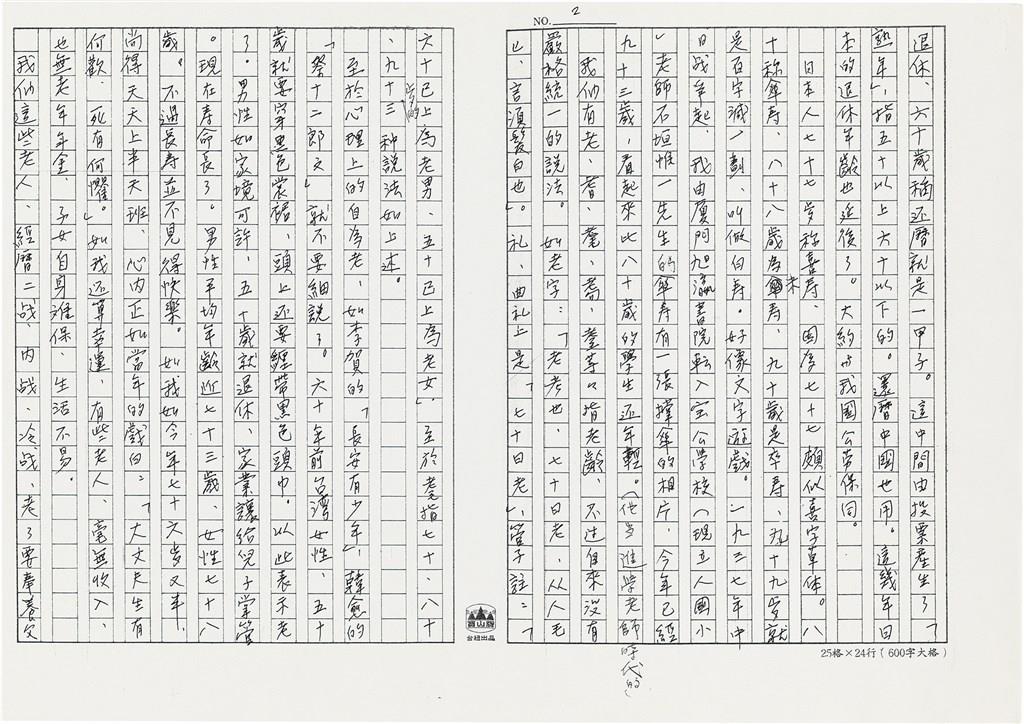 NO. 2
退休、六十歲稱还曆就是一甲子。這中間由投票產生了「
熟年」,指五十以上六十以下的。還曆中國也用。這幾年日
本的退休年齡也延後了。大約与我國公劳保同。
日本人七十七岁称喜寿、因為七十七頗似喜字草体。八
十称傘寿、八十八歲為米寿、九十歲是卒寿、九十九岁就
是百字減一劃、叫做白寿。好像文字遊戲。一九三七年中
日战争起、我由厦門旭瀛書院転入宝公學校(現立人國小
)老師石垣惟一先生的傘寿有一張撐傘的相片、今年已經
九十三歲,看起來比八十歲的學生还年輕。(他当進學老師
時代的)
我们有老、耆、耄、耋、耋等々皆老齡、不过自來沒有
嚴格統一的說法。如老字:「老考也、七十曰老、从人毛
匕、言須髮白也」。礼、曲礼上是「七十曰老」,管子註:「
六十已上為老男、五十已上為老女」。至於耄指七十、八十
、九十三种說法如上述。
岁的
至於心理上的自為老、如李賀的「長安有少年」,韓愈的
「祭十二郎文」就不要細說了。六十年前台湾女性、五十
歲就要穿黑色裳裙、頭上还要纏帶黑色頭巾。以此表示老
了。男性如家境可許、五十歲就退休、家業讓給兒子掌管
。現在寿命長了。男性平均年齡近七十三歲、女性七十八
歲。不過長寿並不見得快樂。如我如今年七十六岁又半、
尚得天天上半天班、心內正如當年的戲白:「大丈夫生有
何歡、死有何懼。」如我还算幸運、有些老人、毫無收入、
也無老年年金、子女自身难保、生活不易。
我们這些老人、經曆二战、內战、冷战、老了要奉養父
台紐出品
25格×24行(600字大格)